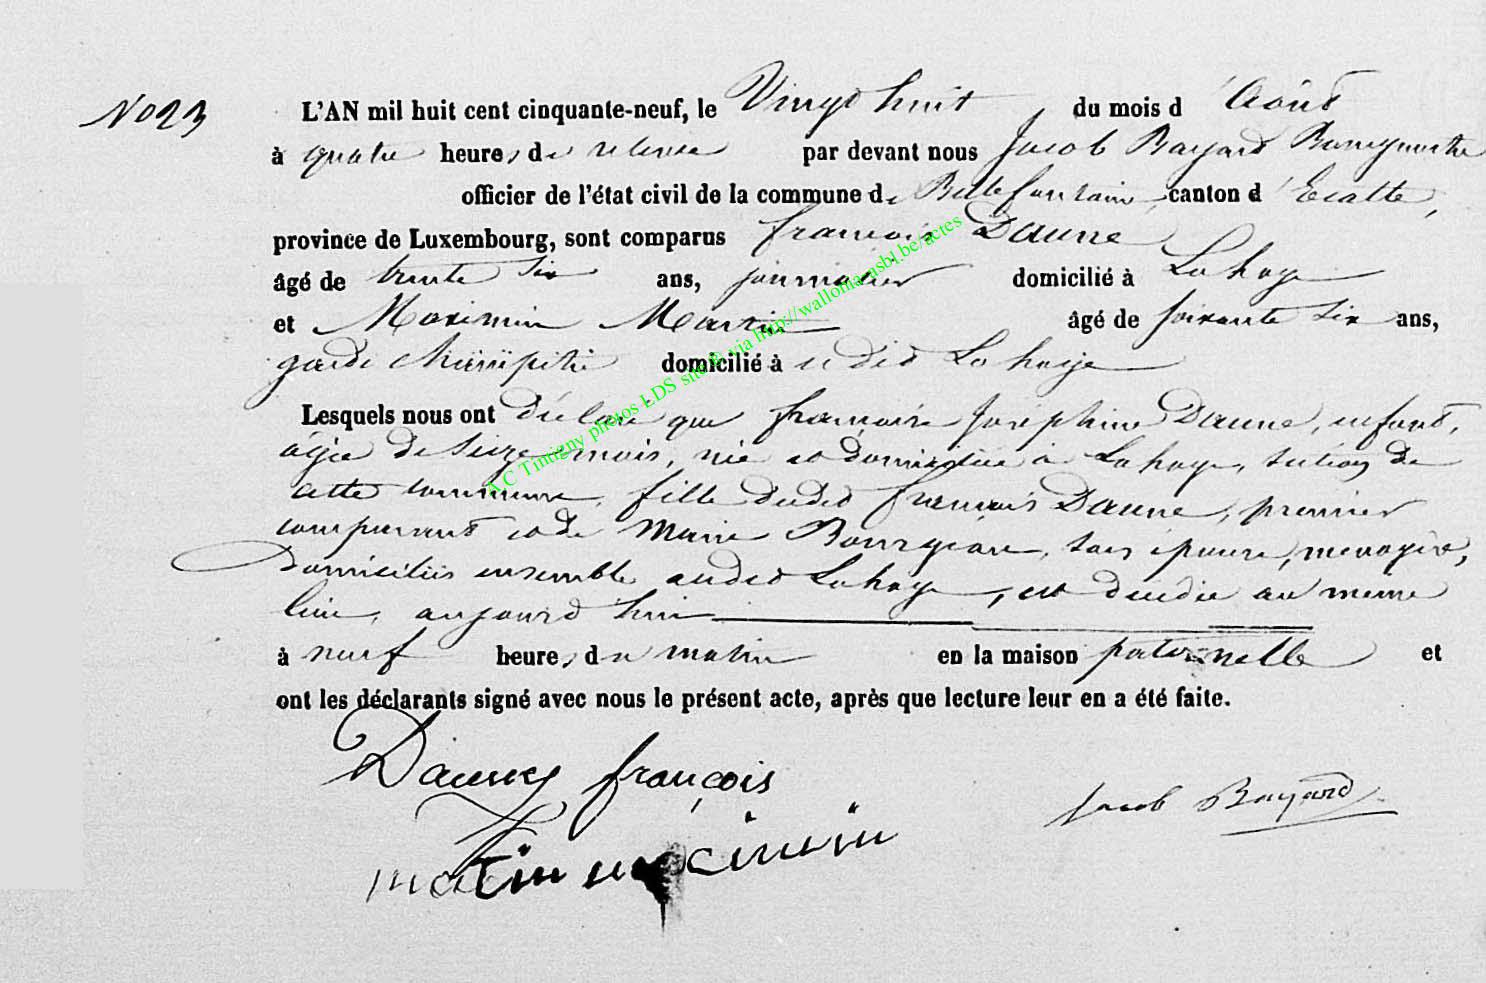 No 23
L'AN mil huit cent cinquante-neuf, le Vingt huit du mois d'Août
à quatre heures de relevée par devant nous Jacob Bayard Bourgmestre
officier de l'état civil de la commune de Bellefontaine, canton d'Etalle,
province de Luxembourg, sont comparus françois Daune
âgé de trente six ans, journalier domicilié à Lahage
et Maximin Martin âgé de soixante six ans,
garde champêtre domicilié à udit Lahage
Lesquels nous ont déclaré que françoise Joséphine Daune, enfant,
âgée de seize mois, née et domiciliée à Lahage, section de
cette commune, fille dudit françois Daune, premier
comparant et de Marie Bourgeois, son épouse, ménagère,
Domiciliés ensemble audit Lahage, est décédée au même
lieu, aujourd'hui
à neuf heures du matin en la maison paternelle et
ont les déclarants signé avec nous le présent acte, après que lecture leur en a été faite.
françois
Jacob Bayard
A.C Tintigny photos LDS site & via http://wallonia-asbl.be/actes